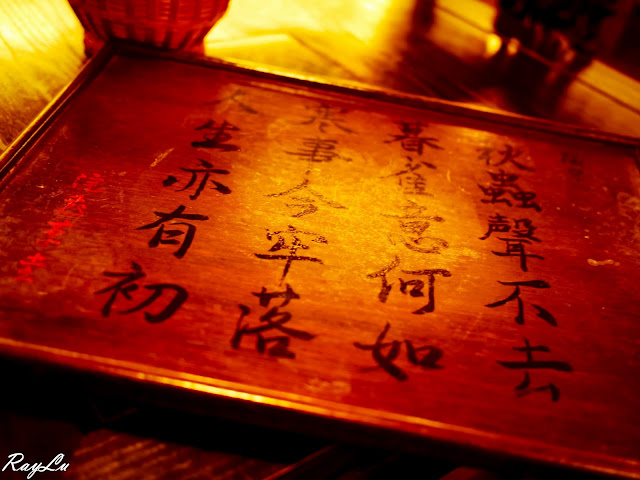 秋蟲聲不去
暮雀意何如
寒事今牢落
人生亦有初
RayLu